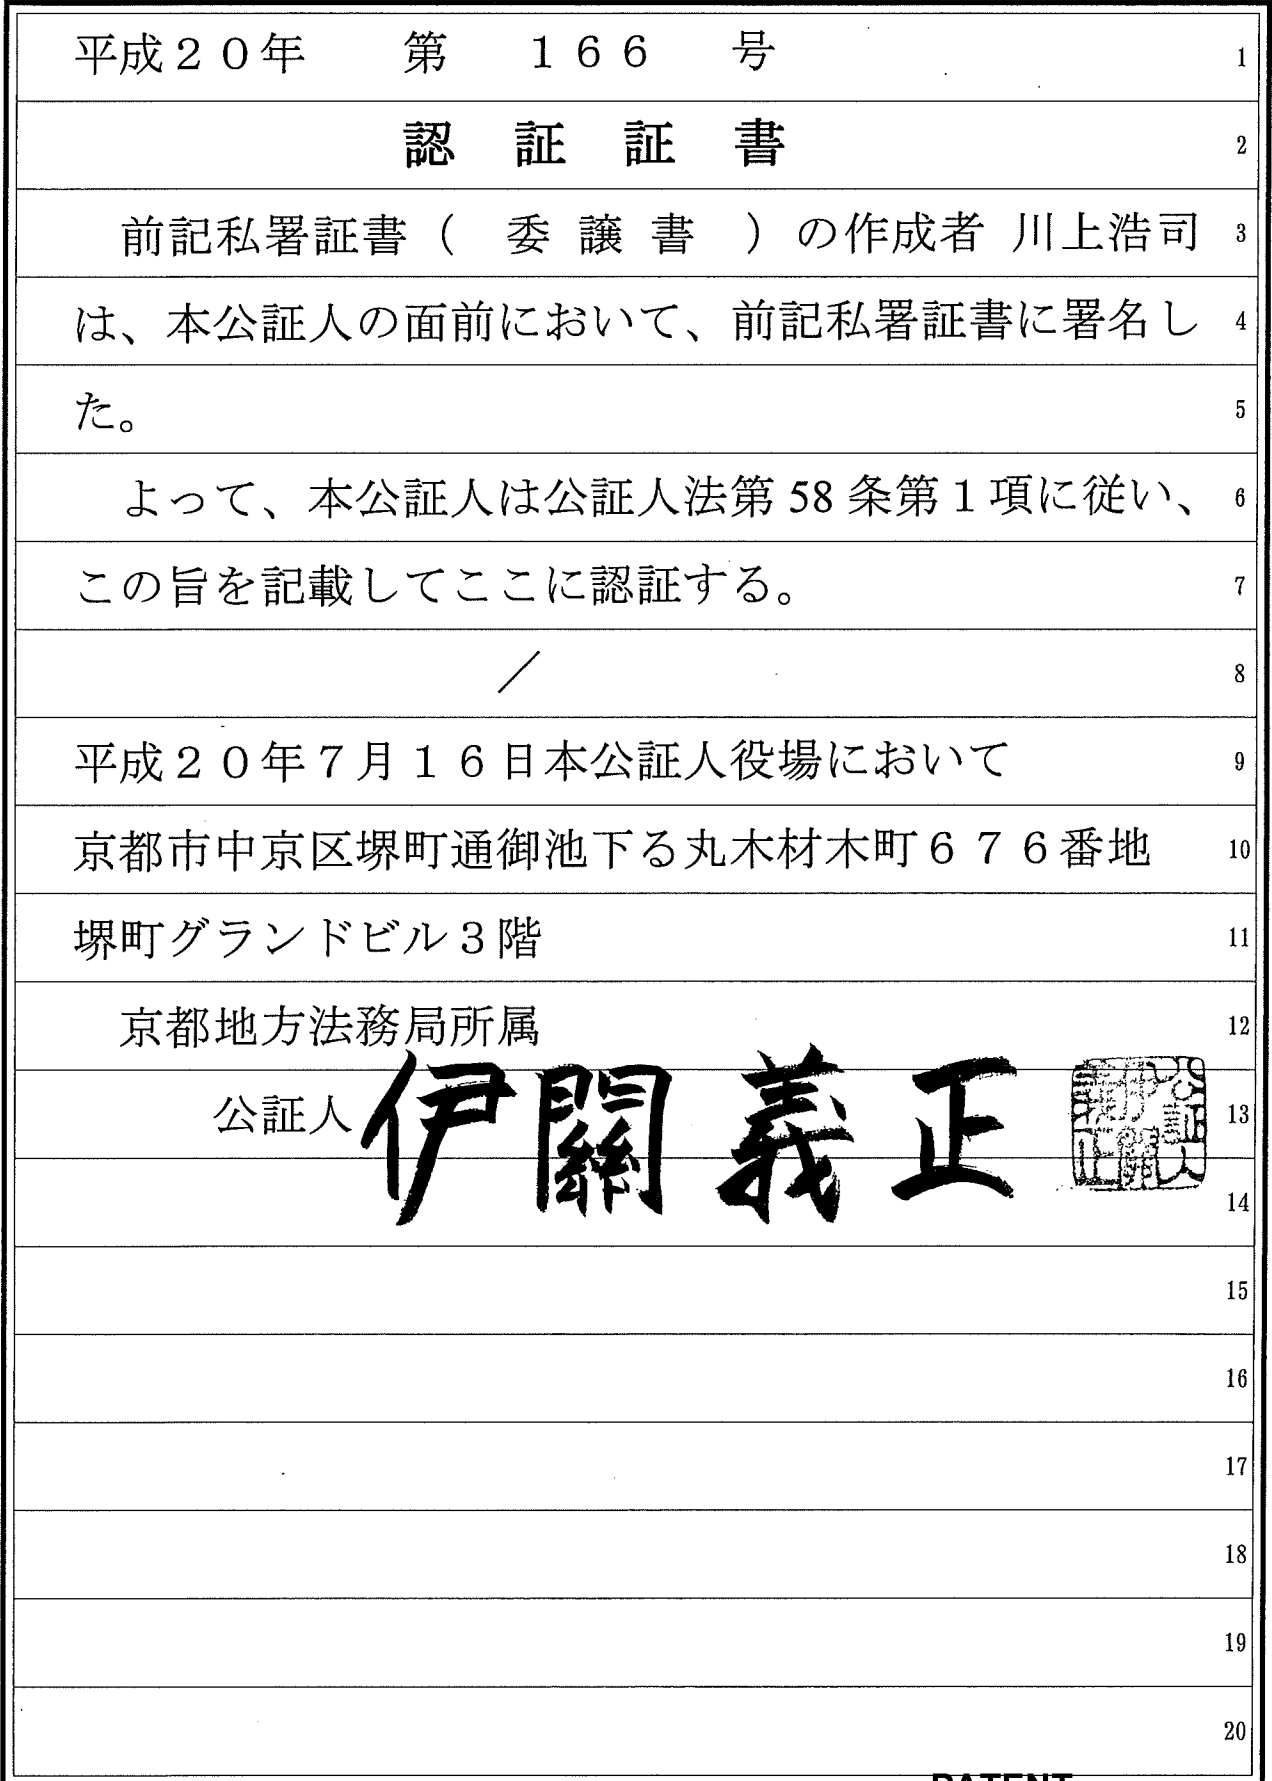 平成２０年　第　１６６　号 1
認証証書 2
前記私署証書（ 委譲書 ）の作成者 川上浩司 3
は、本公証人の面前において、前記私署証書に署名し 4
た。 5
よって、本公証人は公証人法第58条第１項に従い、 6
この旨を記載してここに認証する。 7
／ 8
平成２０年７月１６日本公証人役場において 9
京都市中京区堺町通御池下る丸木材木町６７６番地 10
堺町グランドビル３階 11
京都地方法務局所属 12
公証人 伊關義正 13
公証人伊關義正
14
15
16
17
18
19
20
PATENT